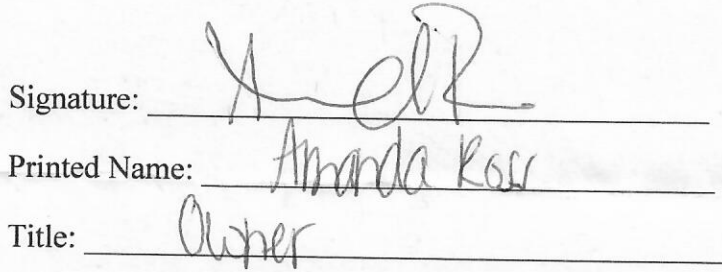 Signature:
Printed Name: Amanda Ross
Title: Owner